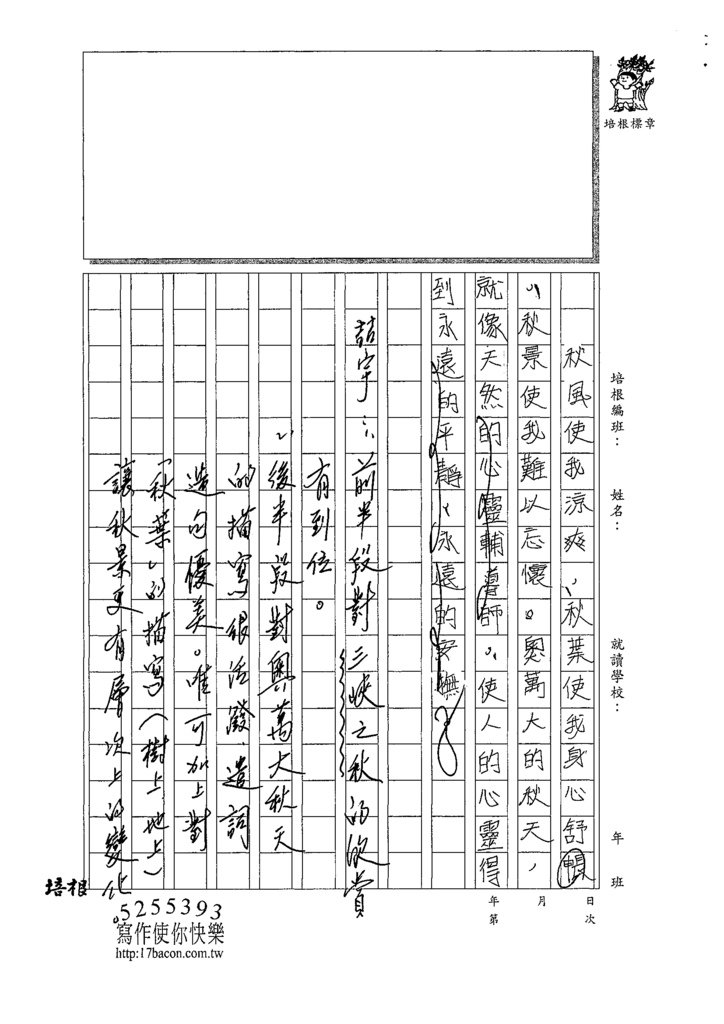 培根標章
培根編班：　姓名：　就讀學校：　年　班
年　月　日
第　次
秋風使我涼爽，秋葉使我身心舒暢
，秋景使我難以忘懷。奧萬大的秋天，
就像天然的心靈輔導師，使人的心靈得
到永遠的平靜、永遠的安撫。
喆宇：前半段對三峽之秋的欣賞
有到位。
後半段對奧萬大秋天
的描寫很活潑，遣詞
造句優美。唯可加上對
「秋葉」的描寫（樹上、地上）
讓秋景更有層次上的變化。
培根
5255393
寫作使你快樂
http:17bacon.com.tw